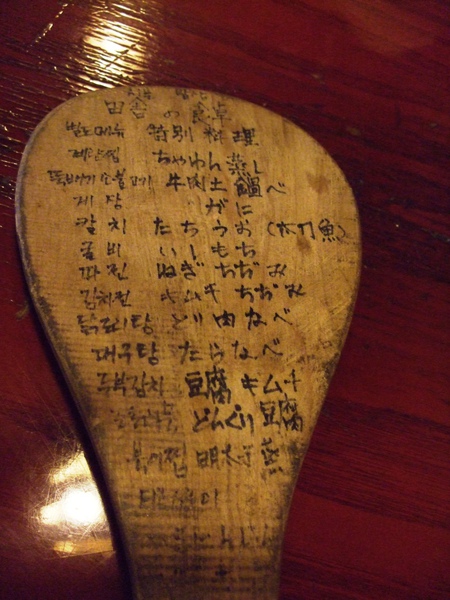 시골 밥상
田舎の食卓
별도메뉴 特別料理
계란찜 ちゃわん蒸し
뚝배기소불고기 牛肉土鍋べ
게장 がに
갈치 たちうお(太刀魚)
굴비 いしもち
파전 ねぎちぢみ
김치전 キムチちぢみ
닭도리탕 どり肉なべ
대구탕 たらなべ
두부김치 豆腐キムチ
どんぐり豆腐
북어찜 明太子蒸